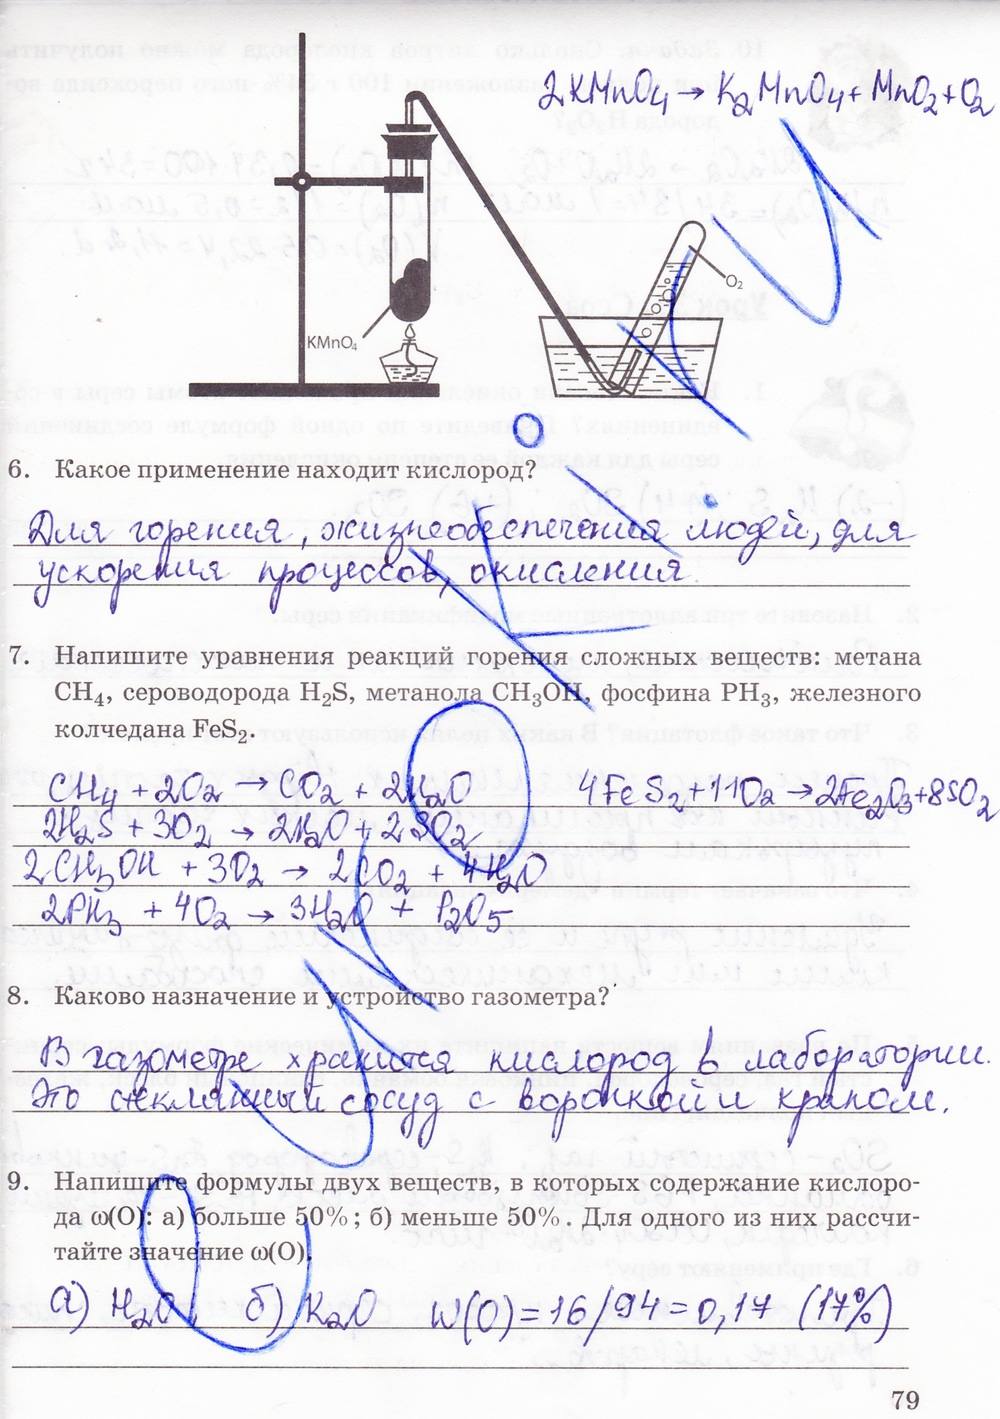 2KMnO4 → K2MnO4 + MnO2 + O2
O2
KMnO4
6. Какое применение находит кислород?
Для горения, жизнеобеспечения людей, для
ускорения процессов, окисления
7. Напишите уравнения реакций горения сложных веществ: метана
CH4, сероводорода H2S, метанола CH3OH, фосфина PH3, железного
колчедана FeS2.
CH4 + 2O2 → CO2 + 2H2O 4FeS2 + 11O2 → 2Fe2O3 + 8SO2
2H2S + 3O2 → 2H2O + 2SO2
2CH3OH + 3O2 → 2CO2 + 4H2O
2PH3 + 4O2 → 3H2O + P2O5
8. Каково назначение и устройство газометра?
В газометре хранится кислород в лаборатории.
Это стеклянный сосуд с воронкой и краном.
9. Напишите формулы двух веществ, в которых содержание кислоро-
да ω(O): а) больше 50%; б) меньше 50%. Для одного из них рассчи-
тайте значение ω(O).
а) H2O б) K2O W(O) = 16/94 = 0,17 (17%)
79